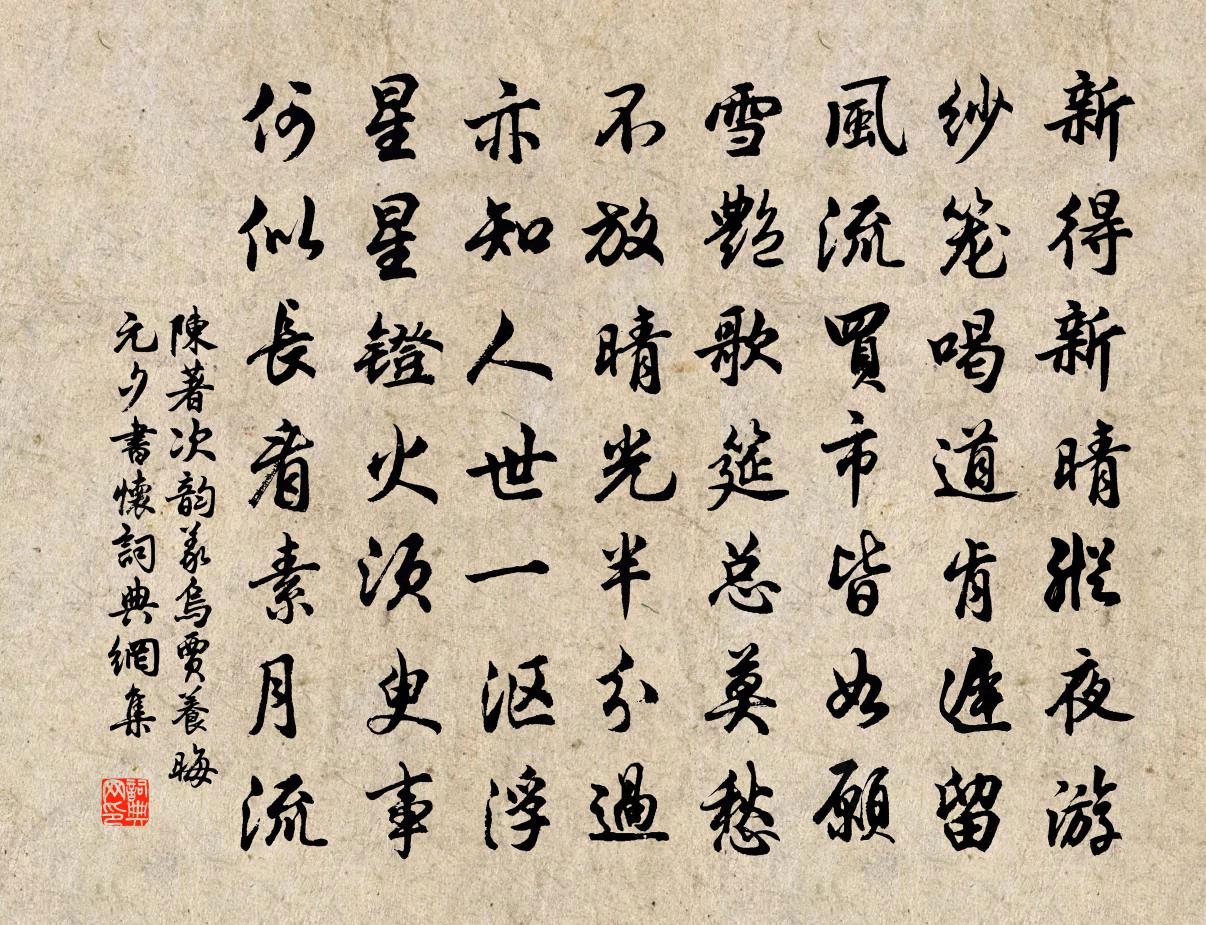 新得新晴縱夜游
紗笼喝道肯遲留
風流買市皆如願
雪艷歌筵总莫愁
不放晴光半分過
亦知人世一沤浮
星星鐙火须叟事
何似長看素月流
陳著次韵義烏賈養晦
元夕書懷詞典網集
詞典网印